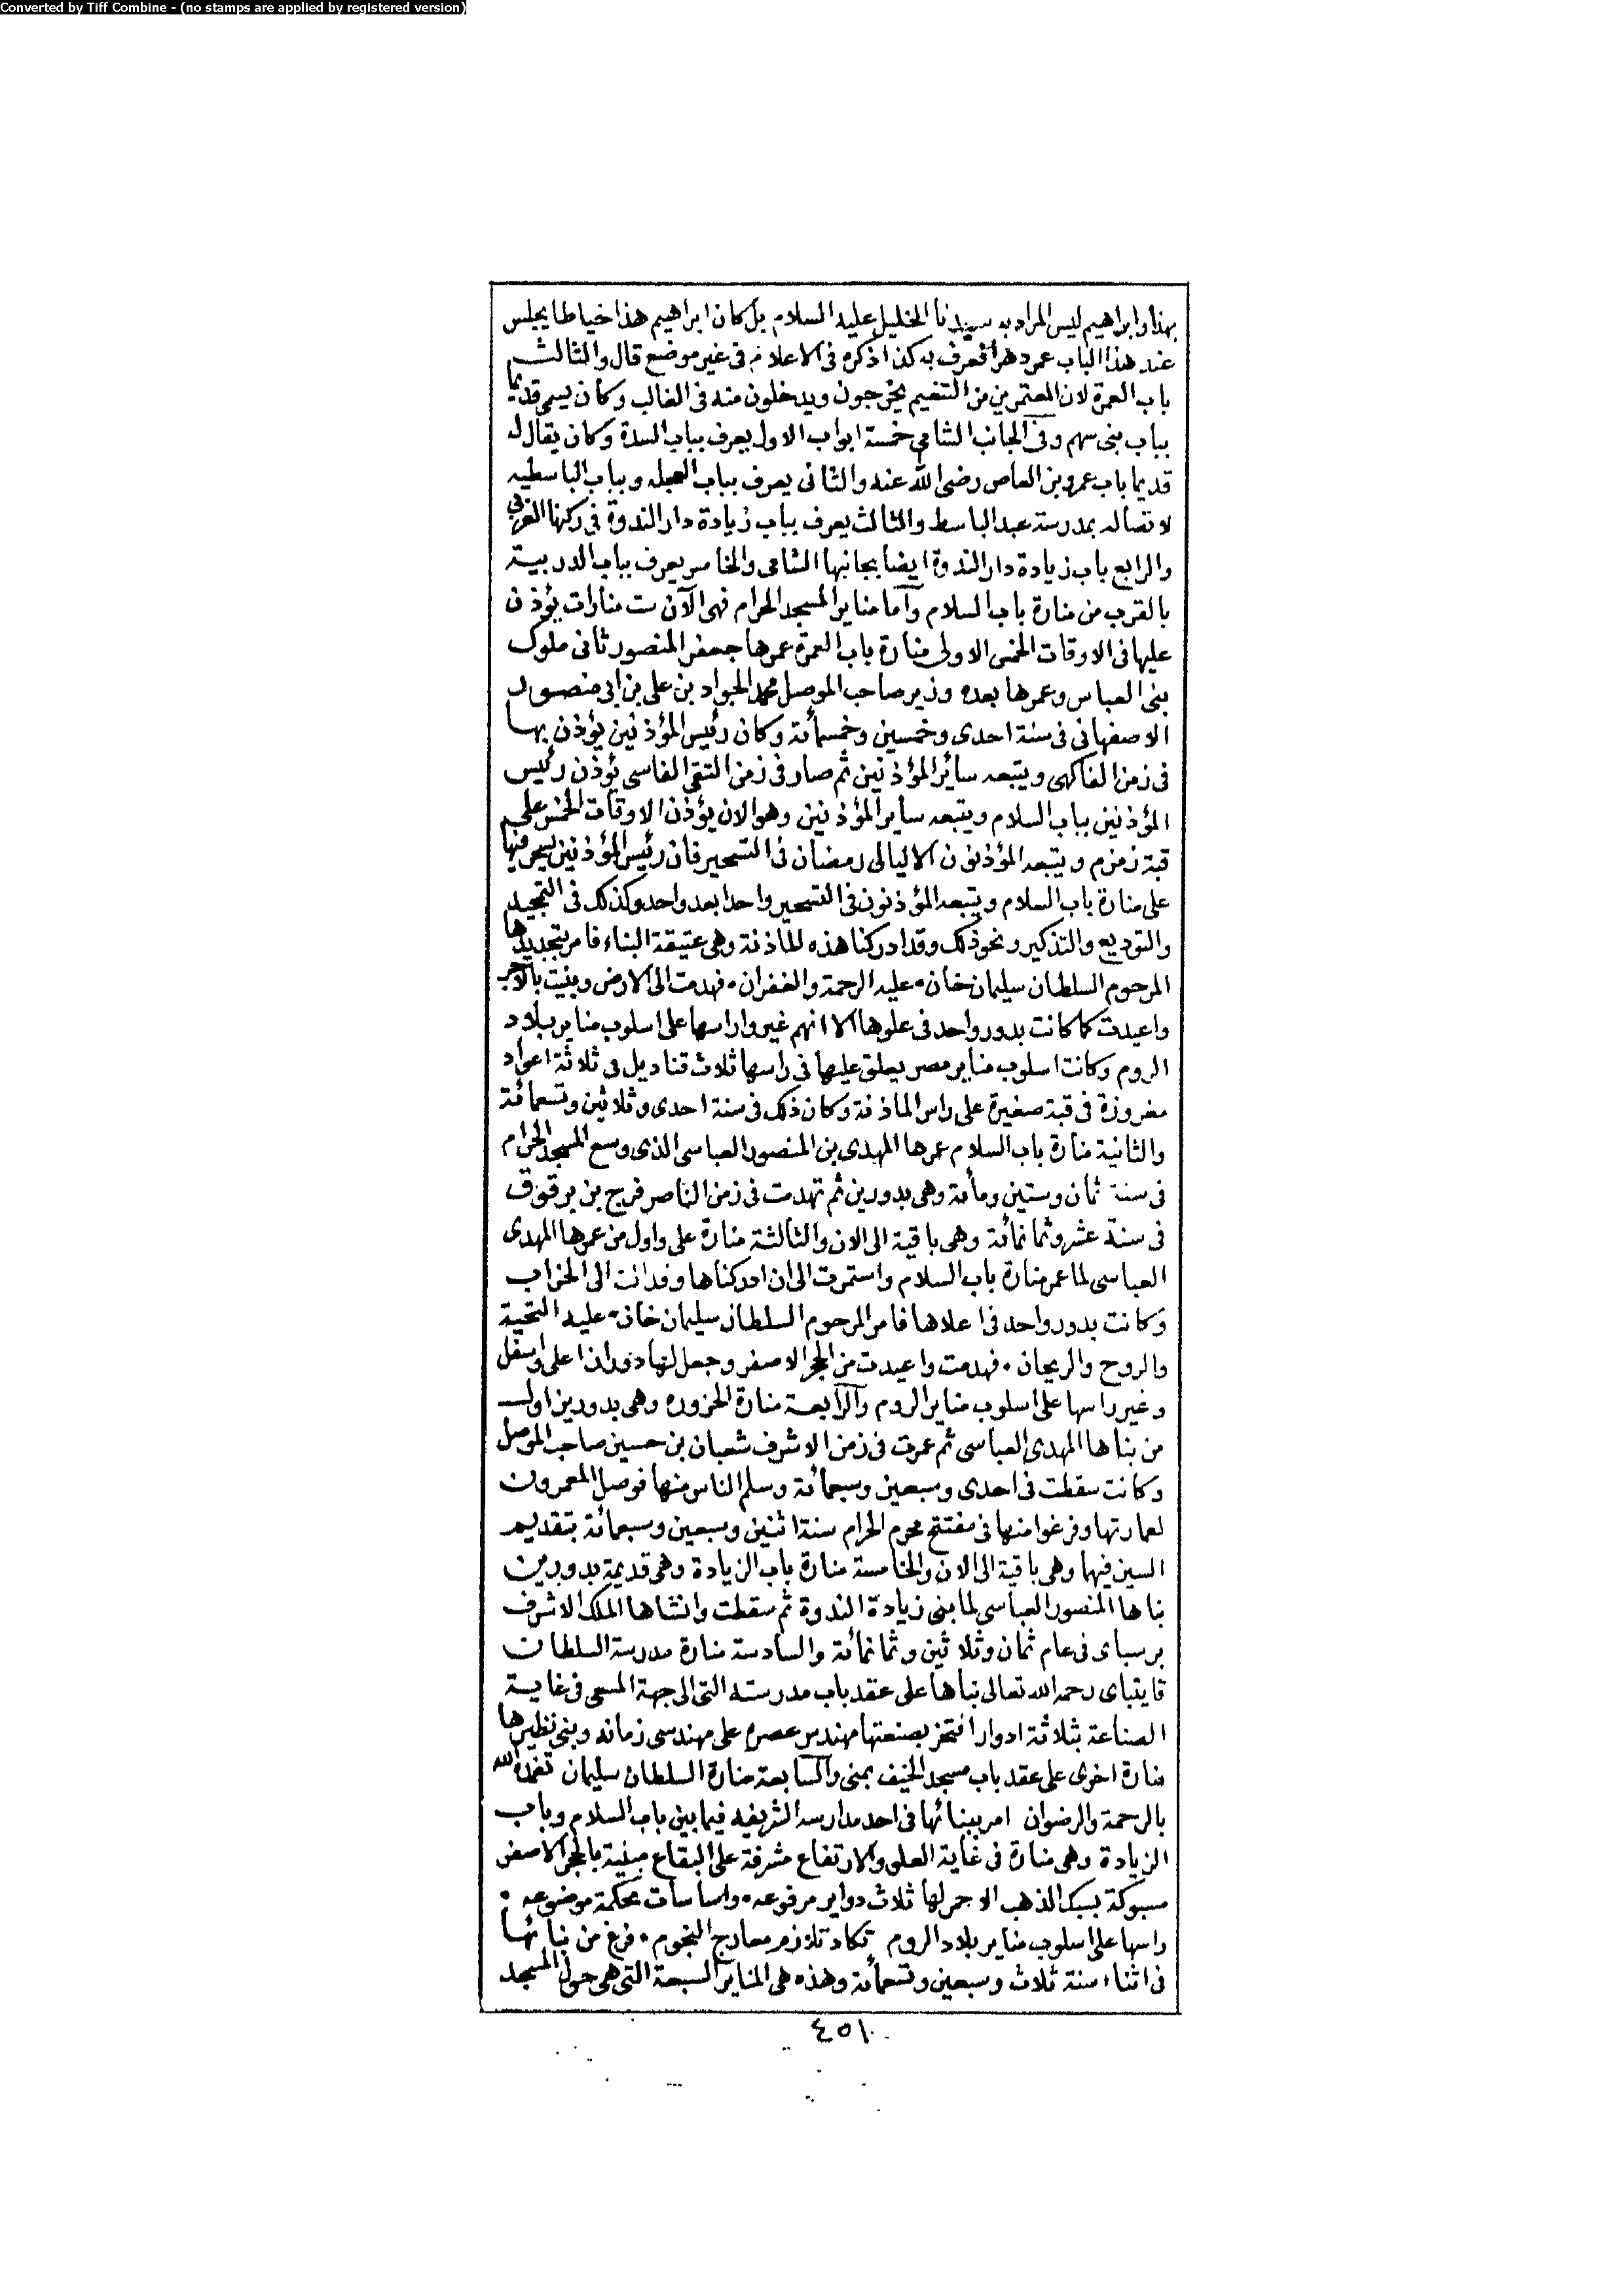 Converted by Tiff Combine - (no stamps are applied by registered version)
بهذا وابراهيم ليس المراد به سيدنا الخليل عليه السلام بل كان ابراهيم هذا خياطا يجلس
عند هذا الباب عمر دهرا فعرف به كذا ذكره فى الاعلام فى غير موضع قال والثالث
باب العمرة لان المعتمرين من التنعيم يخرجون ويدخلون منه فى الغالب وكان يسمى قديما
بباب بنى سهم وفى الجانب الشامى خمسة ابواب الاول يعرف بباب السدة وكان يقال له
قديما باب عمرو بن العاص رضى الله عنه والثانى يعرف بباب العجله وبباب الباسطيه
لاتصاله بمدرسة عبد الباسط والثالث يعرف بباب زيادة دار الندوة فى ركنها الغربى
والرابع باب زيادة دار الندوة ايضا بجانبها الشامى والخامس يعرف بباب الدريبة
بالقرب من منارة باب السلام وأما مناير المسجد الحرام فهى الآن ست منارات يؤذن
عليها فى الاوقات الخمس الاولى منارة باب العمرة عمرها جعفر المنصور ثانى ملوك
بنى العباس وعمرها بعده وزير صاحب الموصل محمد الجواد بن على بن ابى منصور
الاصفهانى فى سنة احدى وخمسين وخمسمائة وكان رئيس المؤذنين يؤذن بها
فى زمن الفاكهى ويتبعه سائر المؤذنين ثم صار فى زمن التقى الفاسى يؤذن رئيس
المؤذنين بباب السلام ويتبعه ساير المؤذنين وهو الان يؤذن الاوقات الخمس على
قبة زمزم ويتبعه المؤذنون الا ليالى رمضان فى التسحير فان رئيس المؤذنين يسحر فيها
على منارة باب السلام ويتبعه المؤذنون فى التسحير واحدا بعد واحد وكذلك فى التمجيد
والتوديع والتذكير ونحو ذلك وقد ادركنا هذه الماذنة وهى عتيقة البناء فامر بتجديدها
المرحوم السلطان سليمان خان۰ عليه الرحمة والغفران۰ فهدمت الى الارض وبنيت بالآجر
واعيدت كما كانت بدور واحد فى علوها الا انهم غيروا راسها على اسلوب مناير بلاد
الروم وكانت اسلوب مناير مصر يعلق عليها فى راسها ثلاث قناديل فى ثلاثة اعواد
مغروزة فى قبة صغيرة على راس الماذنة وكان ذلك فى سنة احدى وثلاثين وتسعمائة
والثانية منارة باب السلام عمرها المهدى بن المنصور العباسى الذى وسع المسجد الحرام
فى سنة ثمان وستين ومأئة وهى بدورين ثم تهدمت فى زمن الناصر فرج بن برقوق
فى سنة عشر وثمانمائة وهى باقية الى الان والثالثة منارة على واول من عمرها المهدى
العباسى لما عمر منارة باب السلام واستمرت الى ان ادركناها وقد الت الى الخراب
وكانت بدور واحد فى اعلاها فامر المرحوم السلطان سليمان خان۰ عليه التحية
والروح والريحان ۰ فهدمت واعيدت من الحجر الاصفر وجعل لها دوران اعلى واسفل
وغير راسها على اسلوب مناير الروم والرابعة منارة الحزوره وهى بدورين اول
من بناها المهدى العباسى ثم عمرت فى زمن الاشرف شعبان بن حسين صاحب الموصل
وكانت سقطت فى احدى وسبعين وسبعمائة وسلم الناس منها فوصل المعمرون
لعمارتها وفرغوا منها فى مفتتح محرم الحرام سنة اثنين وسبعين وسبعمائة بتقديم
السين فيها وهى باقية الى الان والخامسة منارة باب الزيادة وهى قديمة بدورين
بناها المنصور العباسى لما بنى زيادة الندوة ثم سقطت وانشاها الملك الاشرف
برسباى فى عام ثمان وثلاثين وثمانمائة والسادسة منارة مدرسة السلطان
قايتباى رحمه الله تعالى بناها على عقد باب مدرسته التى الى جهة المسعى فى غاية
الصناعة بثلاثة ادوار افتخر بصنعتها مهندس عصره على مهندسى زمانه وبنى نظيرها
منارة اخرى على عقد باب مسجد الخيف بمنى والسابعة منارة السلطان سليمان تغمده الله
بالرحمة والرضوان امر ببنائها فى احد مدارسه الشريفه فيما بين باب السلام وباب
الزيادة وهى منارة فى غاية العلو والارتفاع مشرفة على البقاع مبنية بالحجر الاصفر
مسبوكة بسبك الذهب الاحمر لها ثلاث دواير مرفوعه۰ واساسات محكمة موضوعه ۰
راسها على اسلوب مناير بلاد الروم تكاد تلازم معارج النجوم ۰ فرغ من بنائها
فى اثناء سنة ثلاث وسبعين وتسعمأئة وهذه هى المناير السبعة التى هى حول المسجد
٤٥١